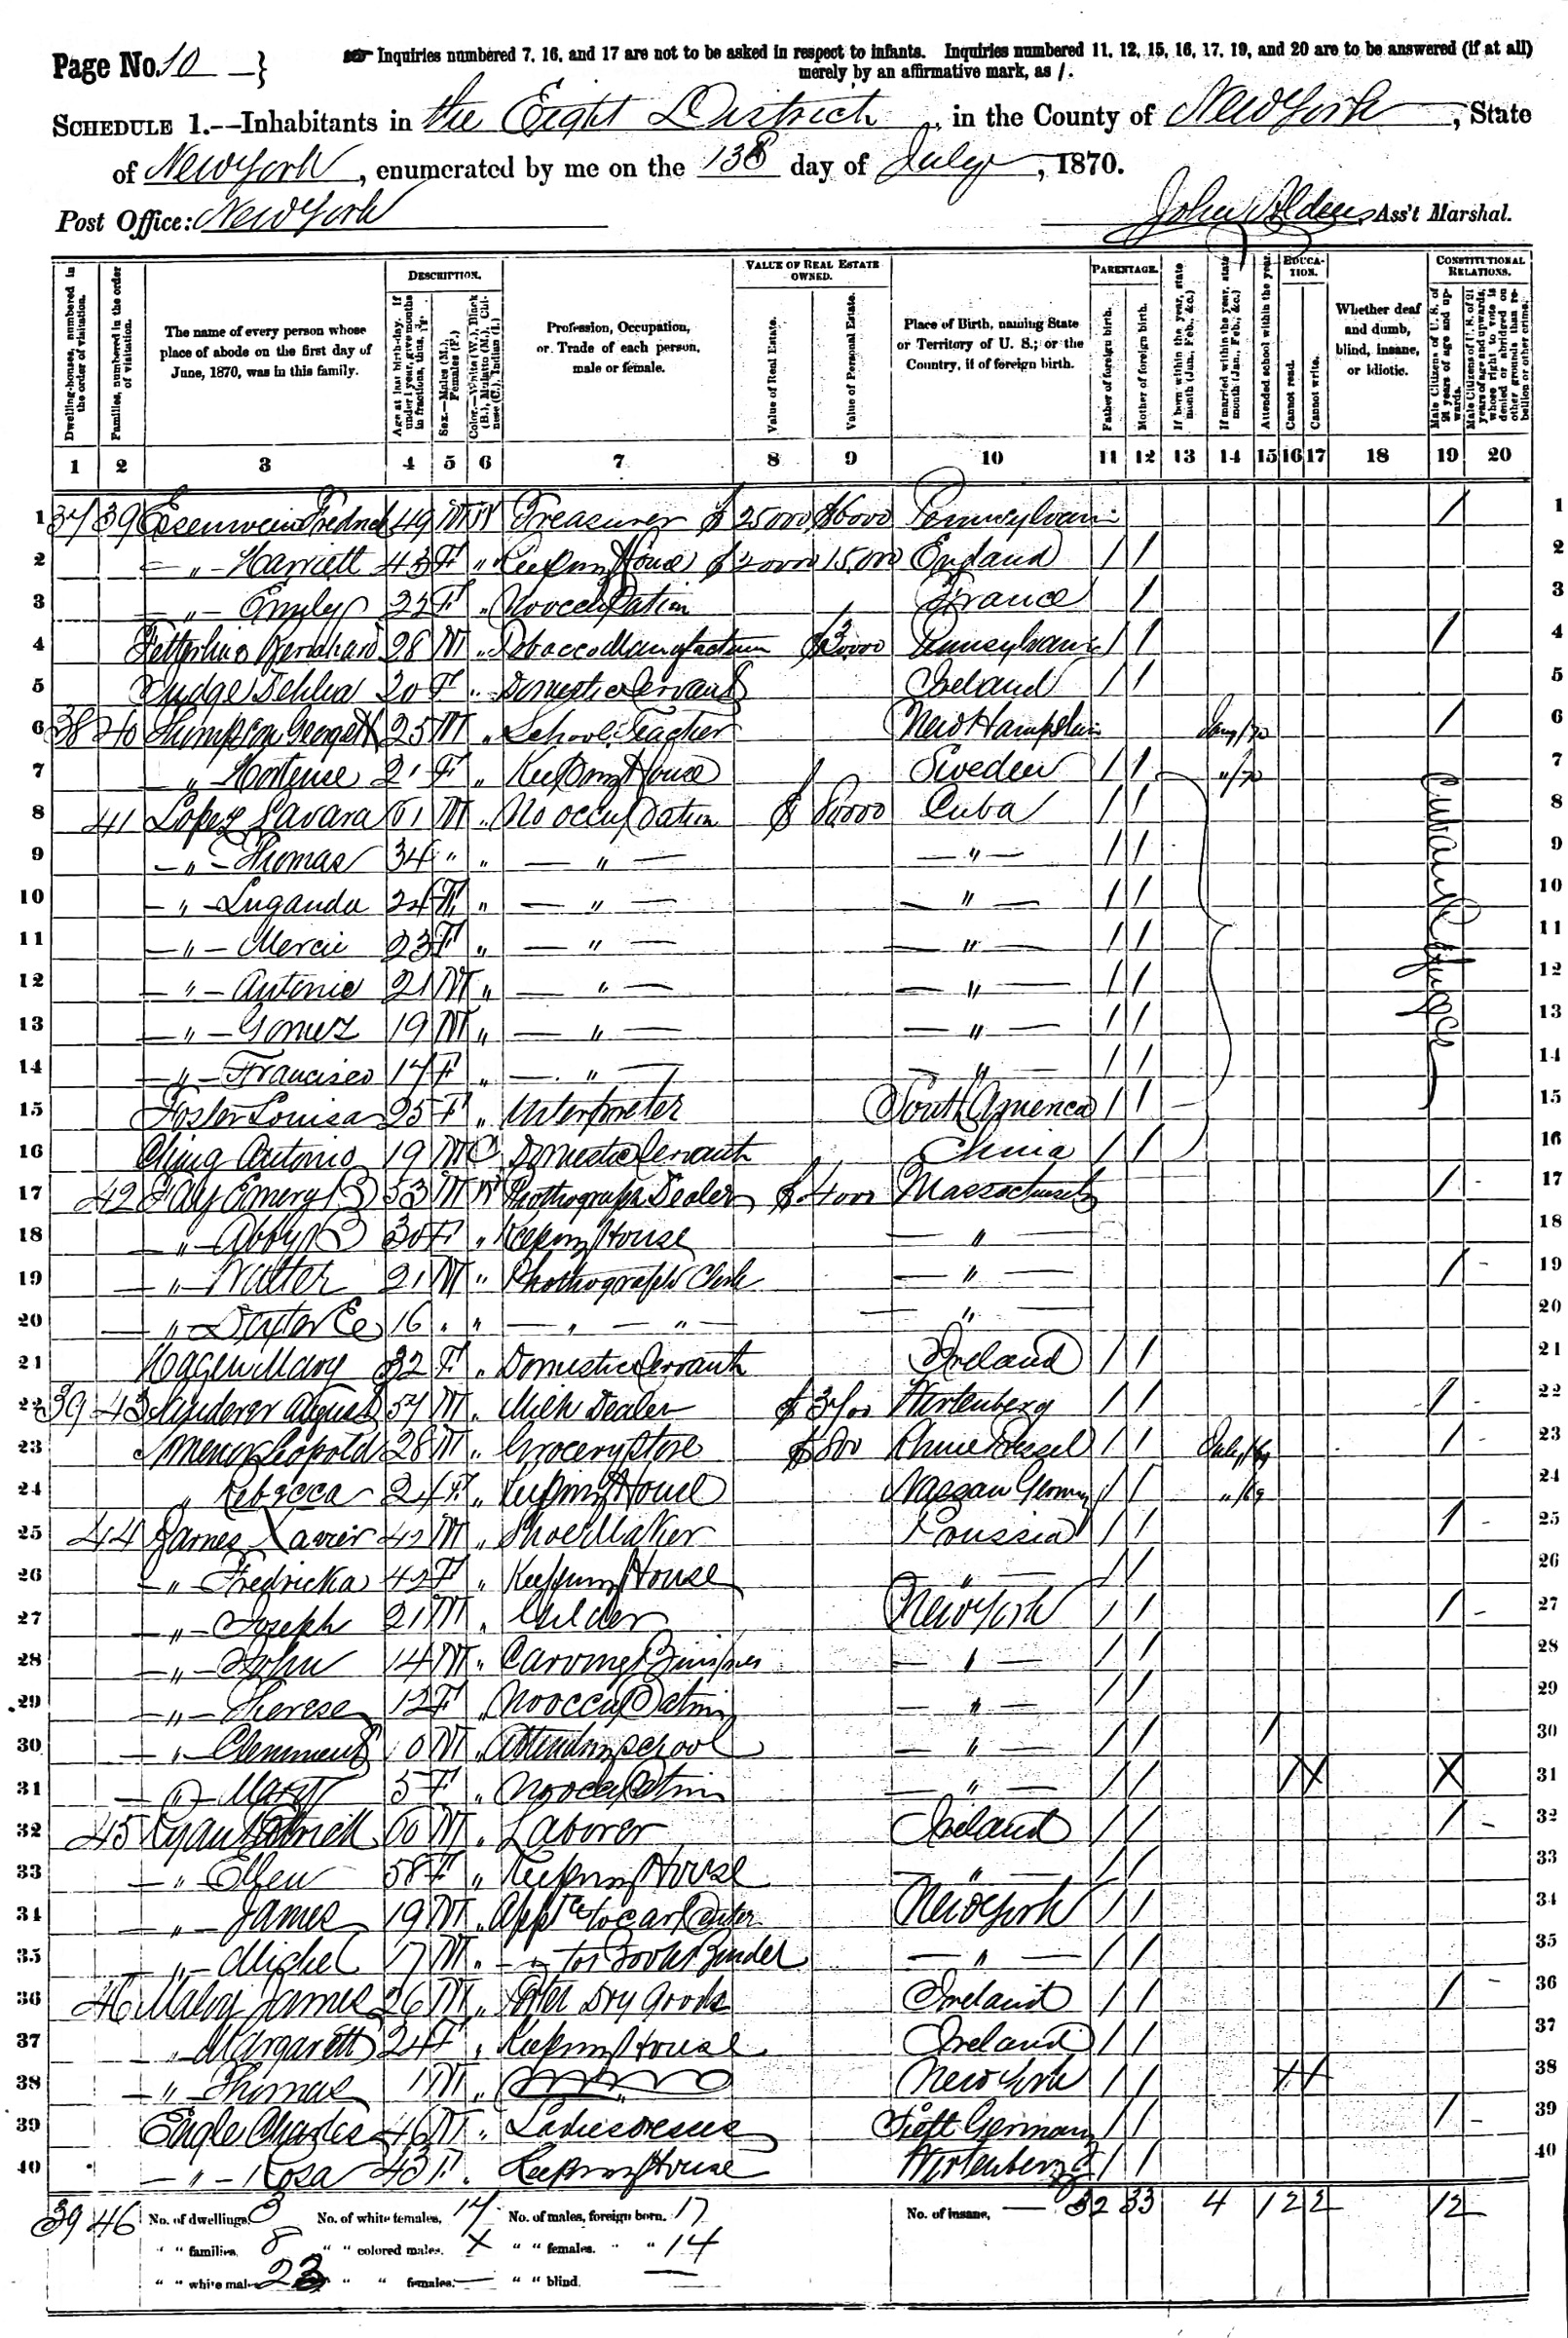 Page No. 10 }
Inquiries numbered 7, 16, and 17 are not to be asked in respect to infants. Inquiries numbered 11, 12, 15, 16, 17, 19, and 20 are to be answered (if at all)
merely by an affirmative mark, as /.
SCHEDULE 1.--Inhabitants in the Eight District, in the County of New York, State
of New York, enumerated by me on the 13 day of July, 1870.
Post Office: New York John Alden, Ass't Marshal.
Dwelling-houses, numbered in the order of visitation.
Families, numbered in the order of visitation.
The name of every person whose place of abode on the first day of June, 1870, was in this family.
DESCRIPTION.
Age at last birth-day. If under 1 year, give months in fractions, thus, 3/12.
Sex.--Males (M.), Females (F.)
Color.--White (W.), Black (B.), Mulatto (M.), Chinese (C.), Indian (I.)
Profession, Occupation, or Trade of each person, male or female.
VALUE OF REAL ESTATE OWNED.
Value of Real Estate.
Value of Personal Estate.
Place of Birth, naming State or Territory of U. S.; or the Country, if of foreign birth.
PARENTAGE.
Father of foreign birth.
Mother of foreign birth.
If born within the year, state month (Jan., Feb., &c.)
If married within the year, state month (Jan., Feb., &c.)
Attended school within the year.
EDUCATION.
Cannot read.
Cannot write.
Whether deaf and dumb, blind, insane, or idiotic.
CONSTITUTIONAL RELATIONS.
Male Citizens of U. S. of 21 years of age and upwards.
Male Citizens of U. S. of 21 years of age and upwards, whose right to vote is denied or abridged on other grounds than rebellion or other crime.
1 2 3 4 5 6 7 8 9 10 11 12 13 14 15 16 17 18 19 20
1 37 39 Eisenwein Fredrick 49 M W Treasurer $ 25000 $6000 Pennsylvani / 1
2 " Harriett 43 F " Keeping House 15,000 England / / 2
3 " Emily F " No occupation France / 3
4 28 M " Tobacco Manufacturer $3000 Pennsylvania / / / 4
5 20 F " Domestic Servant Ireland / / 5
6 38 40 Simpson George 25 M " School Teacher New Hampshir / 6
7 " Hortense 21 F " Keeping House Sweden / / "/70 7
8 41 Lopez Lavara 61 M " No occupation $ Cuba / / 8
9 " Thomas 34 " " " " / / 9
10 " Luganda 24 F " " " / / 10
11 " Mercie 23 F " " " / / 11
12 " Antonio 21 M " " " / / 12
13 " Gomez 19 M " " " / / 13
14 " Francisco 17 F " " " / / 14
Cuban Refugees
15 Foster Louisa 25 F " Interpreter South America / / 15
16 Ching Antonio 19 M C Domestic Servant China / / 16
17 42 Fay Emery 53 M W Phothograph Dealer $ 4000 Massachusets / 17
18 " Abby 30 F " Keeping House " 18
19 " Walter 21 M " Phothograph Clerk " / 19
20 " 16 " " " " 20
21 Hagen Mary 32 F " Domestic Servant Ireland / / 21
22 39 43 August 57 M " Milk Dealer $ Wirtenberg / / / 22
23 Leopold 28 M " Grocery Store $800 / / July/69 / 23
24 " Rebecca 24 F " Keeping House Nassau Germany / / "/69 24
25 44 James Xavier 42 M " Shoe Maker Proussia / / / 25
26 " Fredricka 42 F " Keeping House " / / 26
27 " Joseph 21 M " Gilder New York / / / 27
28 " John 14 M " Carving " / / 28
29 " Therese 12 F " No occupation " / / 29
30 " Clemment 10 M " Attending school " / / / 30
31 " Mary 5 F " No occupation " / / X X 31
32 45 Ryan Patrick 60 M " Laborer Ireland / / / 32
33 " Ellen 58 F " Keeping House " / / 33
34 " James 19 M " App'ce to Carpenter New York / / 34
35 " Michel 17 M " " to Book Binder " / / 35
36 46 James 26 M " Porter Dry Goods Ireland / / / 36
37 " Margarett 24 F " Keeping House Ireland / / 37
38 " Thomas 1 M " New York / / 38
39 Engle Charles 46 M " German / / / 39
40 " Rosa 43 F " Keeping House Wirtenberg / / 40
39 46 No. of dwellings, 3 No. of white females, 17 No. of males, foreign born. 17 No. of insane, — 32 33 4 1 2 2 12
" " families. 8 " " colored males. X " " females. " " 14
" " white males 23 " " females. — " " blind. —